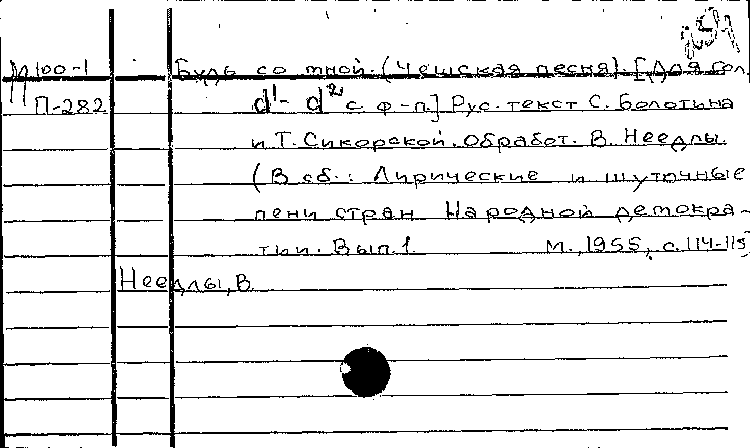 М100-1 Будь со мной. (Чешская песня). [Для гол.
П-282 d¹- d² с. ф-п.] Рус. текст С. Болотина
и Т. Сикорской. Обработ. В. Неедлы.
(В сб.: Лирические и шуточные
пени стран Народной демокра-
тии. Вып.1. М.,1955, с.114-115)
Неедлы, В.